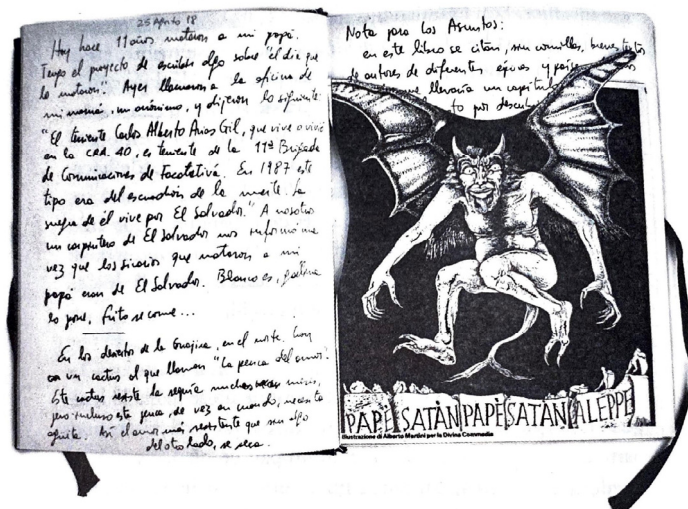 25 Agosto 98
Hoy hace 11 años mataron a mi papá.
Tengo el proyecto de escribir algo sobre "el día que
lo mataron". Ayer llamaron a la oficina de
mi mamá, un anónimo, y dijeron lo siguiente:
"El teniente Carlos Alberto Arias Gil, que vive o vivió
en la cra. 40, es teniente de la 11ª Brigada
de Comunicaciones de Facatativá. En 1987 este
tipo era del escuadrón de la muerte. La
suegra de él vive por El Salvador." A nosotros
un carpintero de El Salvador nos informó una
vez que los sicarios que mataron a mi
papá eran de El Salvador. Blanco es, gallina
lo pone, frito se come...
En los desiertos de la Guajira, en el norte, hay
un cactus al que llaman "La penca del amor".
Este cactus resiste la sequía muchos meses
pero incluso esta penca, de vez en cuando, necesita
agüita. Así el amor más resistente que sin algo
del otro lado, se seca.
Nota para los Asuntos:
en este libro se citan, sin comillas, breves textos
de autores de diferentes épocas y países
que llevaría un capítulo
PAPÈ SATÀN PAPÈ SATÀN ALEPPE
Illustrazione di Alberto Martini per la Divina Commedia